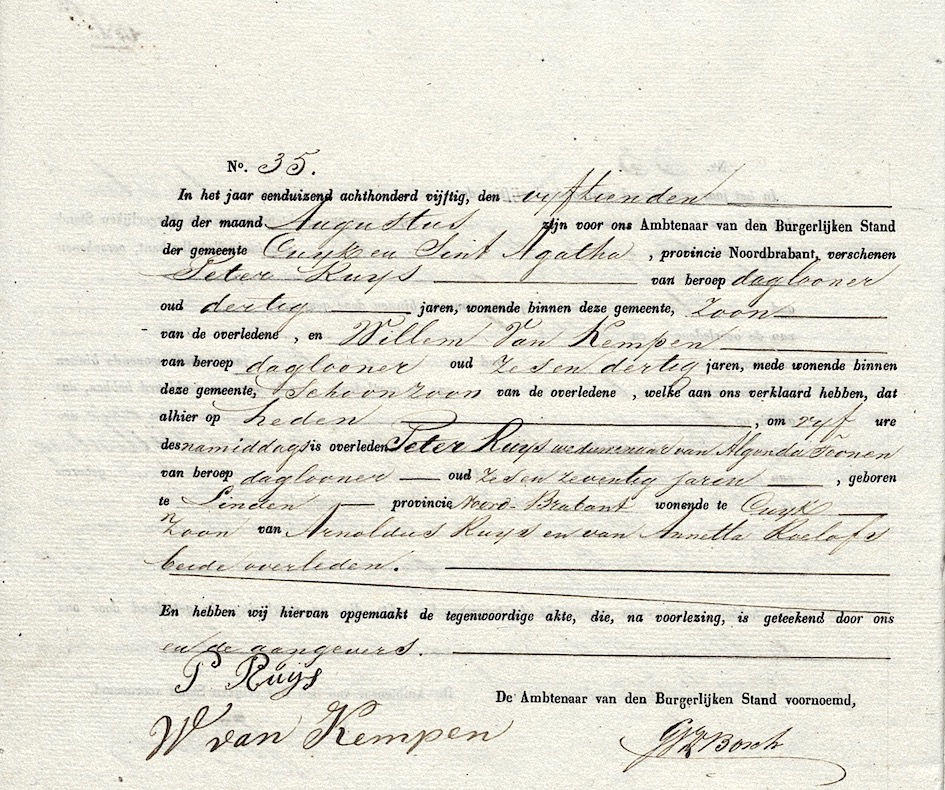 No. 35.
In het jaar eenduizend achthonderd vijftig, den vyftienden
dag der maand Augustus zijn voor ons Ambtenaar van den Burgerlijken Stand
der gemeente Cuyk en Sint Agatha, provincie Noordbrabant, verschenen
Peter Ruys van beroep daglooner
oud dertig jaren, wonende binnen deze gemeente, Zoon
van de overledene, en Willem Van Kempen
van beroep daglooner oud Zes en dertig jaren, mede wonende binnen
deze gemeente, Schoonzoon van de overledene, welke aan ons verklaard hebben, dat
alhier op heden, om vyf ure
des namiddags is overleden Peter Ruys weduwenaar van Algonda Toonen
van beroep daglooner oud Zes en Zeventig jaren, geboren
te Linden provincie Noord-Brabant wonende te Cuyk
Zoon van Arnoldus Ruys en van Annetta Roelofs
beide overleden.
En hebben wij hiervan opgemaakt de tegenwoordige akte, die, na voorlezing, is geteekend door ons
en de aangevers.
P Ruijs
De Ambtenaar van den Burgerlijken Stand voornoemd,
W van Kempen
Bosch